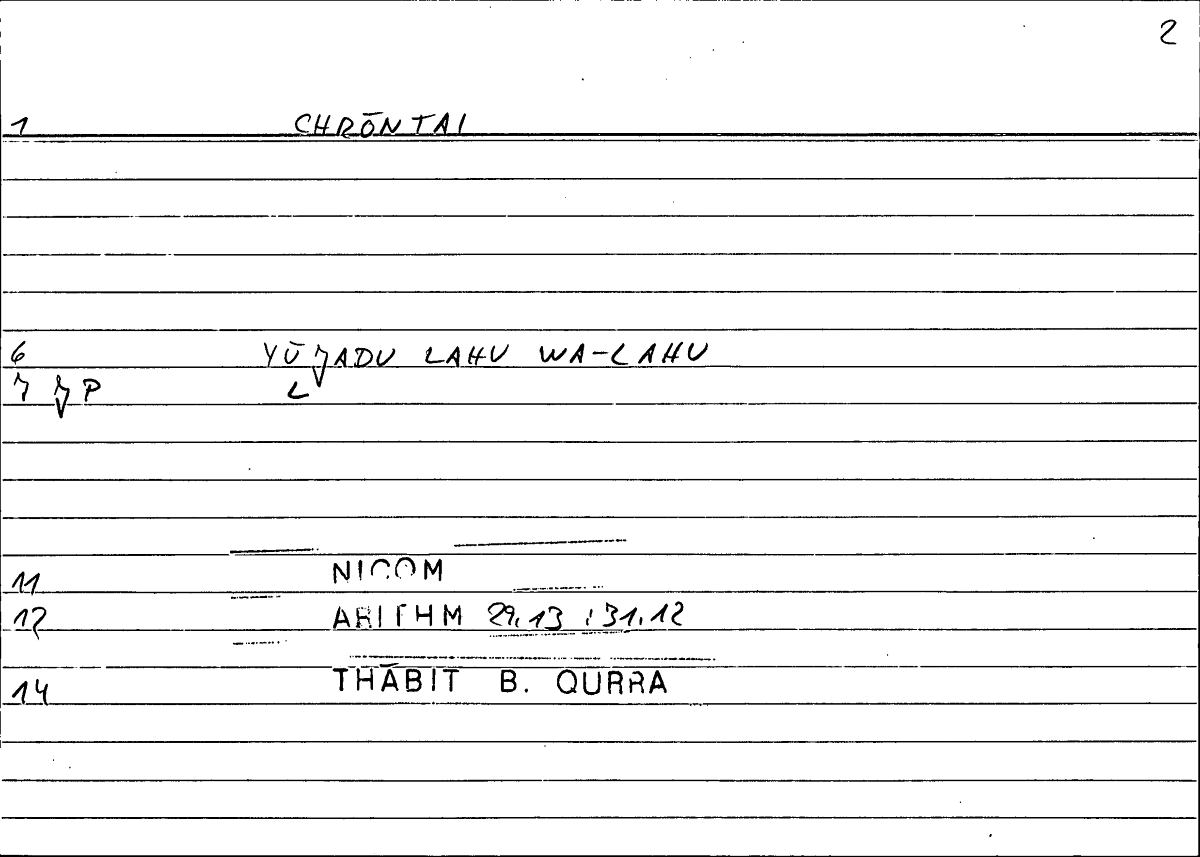 2
1 CHRŌNTAI
6 YŪJ̌ADU LAHU WA-LAHU
7 P L
11 NICOM
12 ARITHM 29,13 ; 31,12
14 THĀBIT B. QURRA